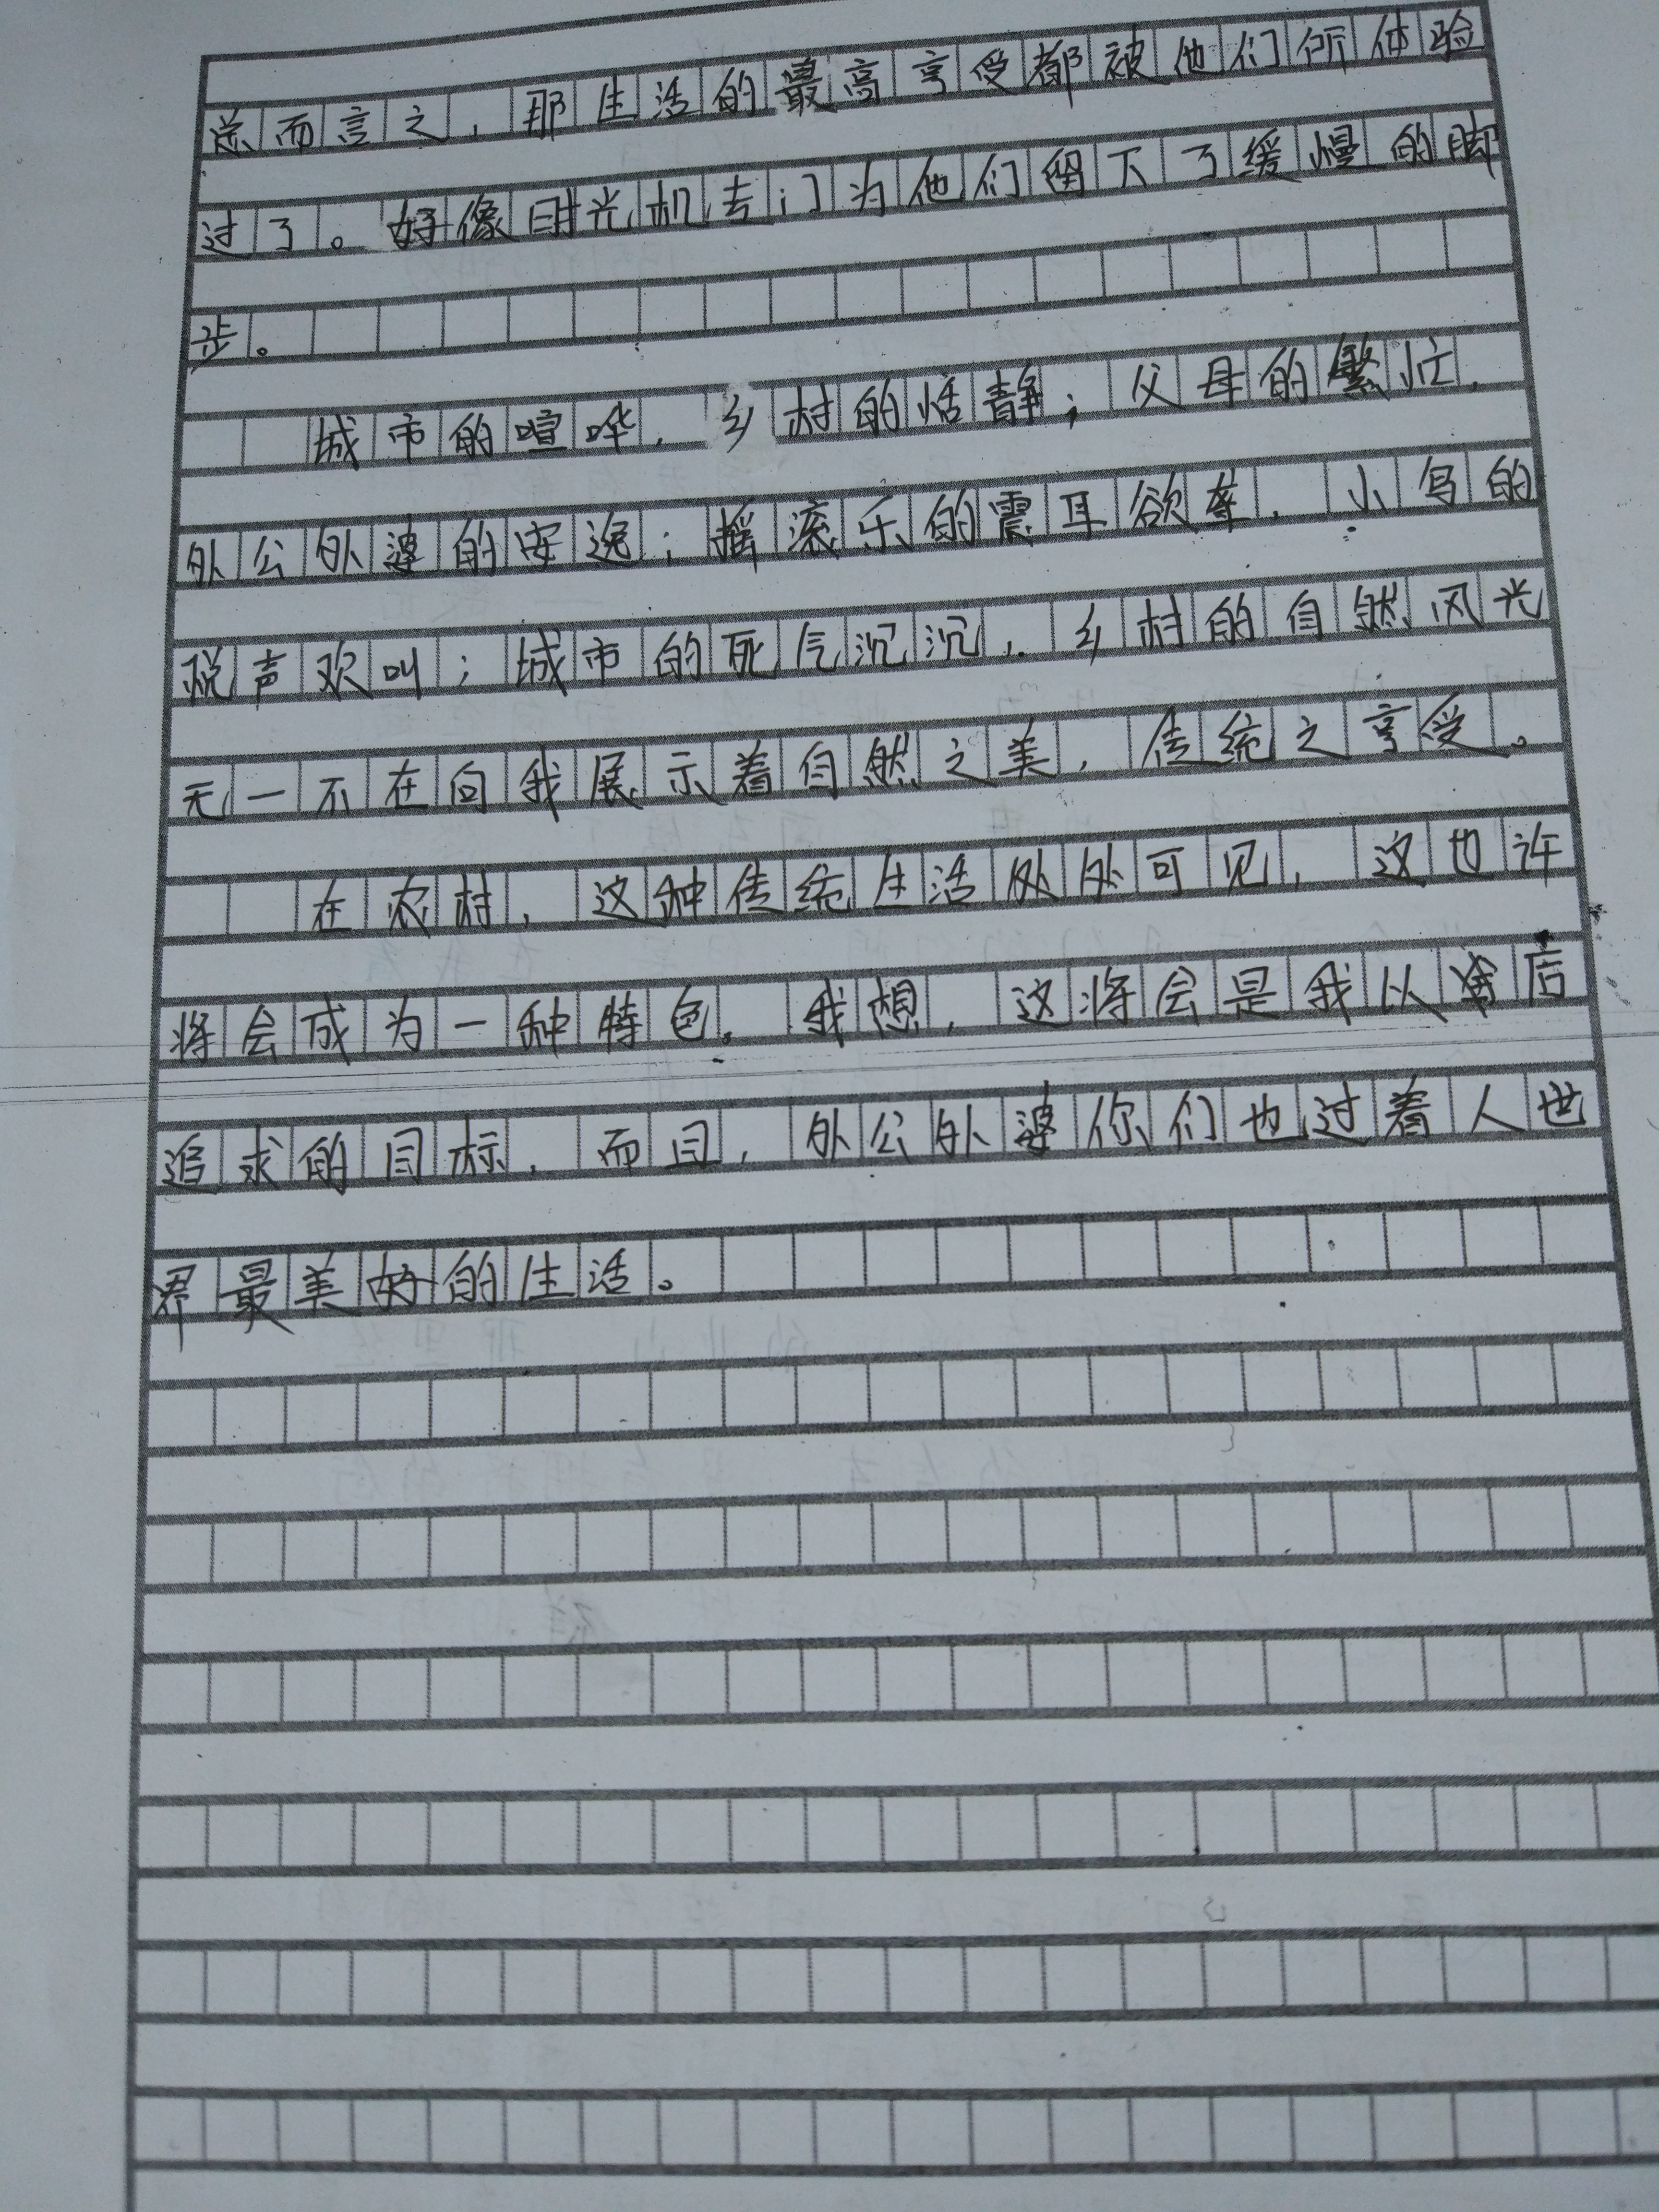 总而言之，那生活的最高享受都被他们所体验
过了。好像时光机专门为他们留下了缓慢的脚
步。
城市的喧哗，乡村的恬静；父母的繁忙，
外公外婆的安逸；摇滚乐的震耳欲聋，小鸟的
悦声欢叫；城市的死气沉沉，乡村的自然风光
无一不在向我展示着自然之美，传统之享受。
在农村，这种传统生活处处可见，这也许
将会成为一种特色。我想，这将会是我以后
追求的目标，而且，外公外婆你们也过着人世
界最美好的生活。